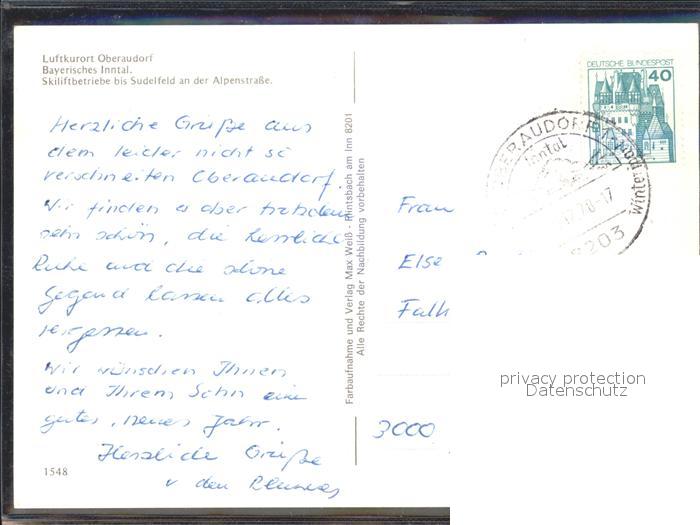 Luftkurort Oberaudorf
Bayerisches Inntal.
Skiliftbetriebe bis Sudelfeld an der Alpenstraße.
Herzliche Grüße aus
dem leider nicht so
verschneiten Oberaudorf.
Wir finden es aber trotzdem
sehr schön, die herrliche
Ruhe und die schöne
Gegend lassen alles
vergessen.
Wir wünschen Ihnen
und Ihrem Sohn ein
gutes, neues Jahr.
Herzliche Grüße
v den
1548
Farbaufnahme und Verlag Max Weiß - Flintsbach am Inn 8201
Alle Rechte der Nachbildung vorbehalten
DEUTSCHE BUNDESPOST
40
OBERAUDORF
Inntal
Winter
-17
8203
Frau
Else
Falk
3000
privacy protection
Datenschutz